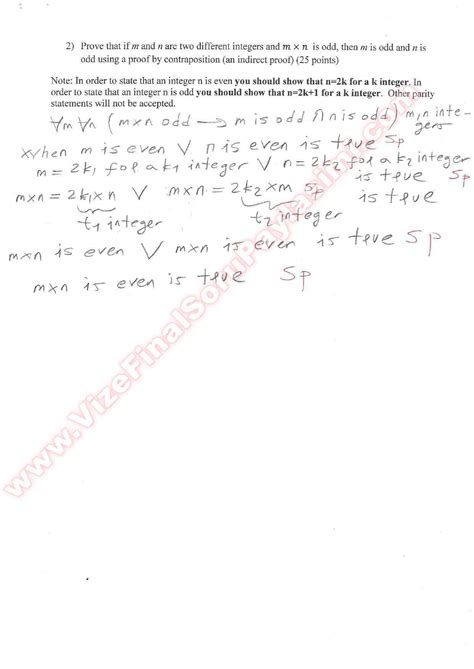 2) Prove that if m and n are two different integers and m × n is odd, then m is odd and n is
odd using a proof by contraposition (an indirect proof) (25 points)
Note: In order to state that an integer n is even you should show that n=2k for a k integer. In
order to state that an integer n is odd you should show that n=2k+1 for a k integer. Other parity
statements will not be accepted.
∀m∀n (m×n odd → m is odd ∧ n is odd) m,n inte-
gers
when m is even ∨ n is even is true 5p
m = 2k₁ for a k₁ integer ∨ n = 2k₂ for a k₂ integer
is true 5p
m×n = 2k₁×n ∨ m×n = 2k₂×m 5p is true
t₁ integer t₂ integer
m×n is even ∨ m×n is even is true 5p
m×n is even is true 5p
www.VizeFinalSoruPaylasimi.com